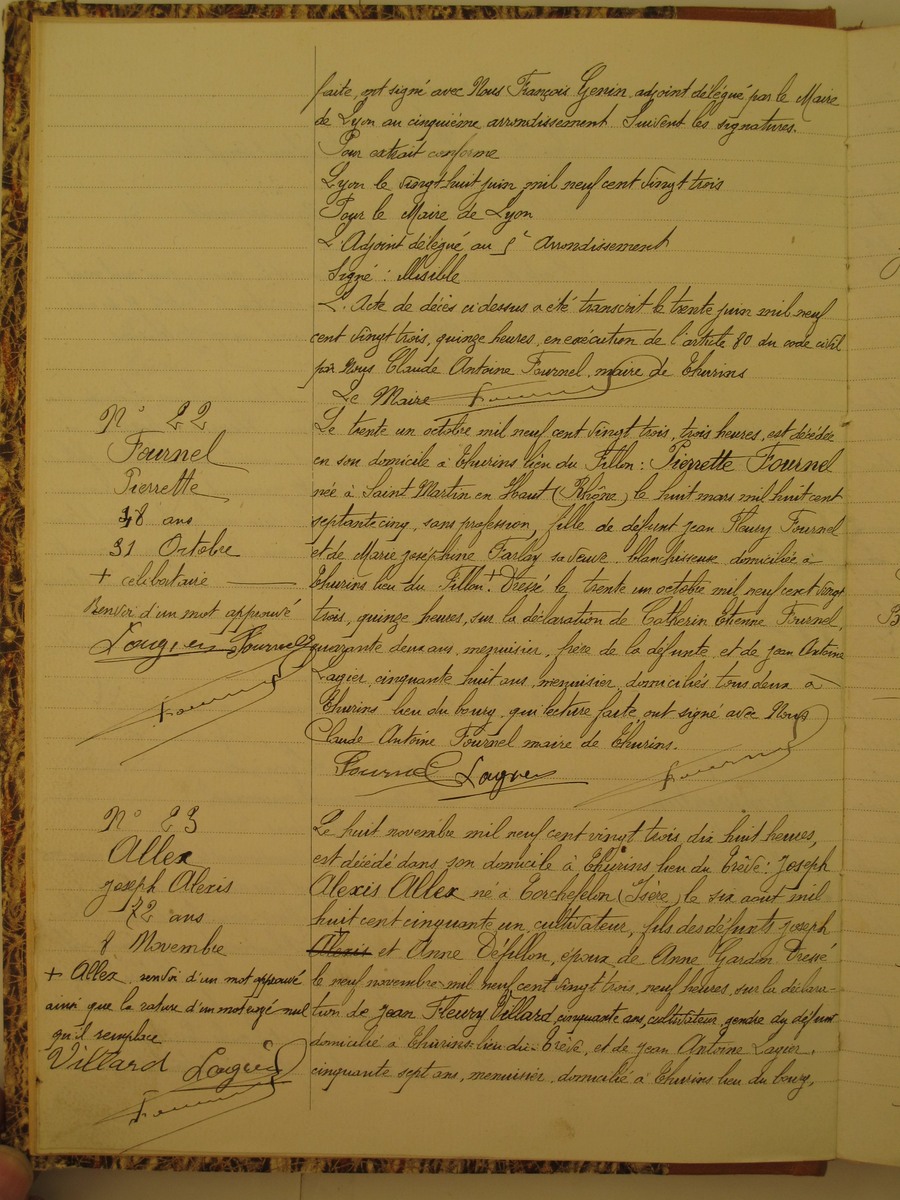 faite, ont signé avec Nous François Genin adjoint délégué par le Maire
de Lyon au cinquième arrondissement Suivent les signatures.
Pour extrait conforme
Lyon le vingt huit juin mil neuf cent vingt trois
Pour le Maire de Lyon
L'Adjoint délégué au 5e Arrondissement
Signé : Illisible
L'Acte de décès ci dessus a été transcrit le trente juin mil neuf
cent vingt trois, quinze heures, en exécution de l'article 80 du code civil
par Nous Claude Antoine Fournel maire de Thurins
Le Maire Fournel
N° 22
Fournel
Pierrette
48 ans
31 Octobre
+ célibataire
Renvoi d'un mot approuvé
Laugier Fournel
Fournel
Le trente un octobre mil neuf cent vingt trois, trois heures, est décédée
en son domicile à Thurins lieu du Fillon : Pierrette Fournel
née à Saint Martin en Haut (Rhône) le huit mars mil huit cent
septante cinq, sans profession, fille de défunt jean Fleury Fournel
et de Marie joséphine Farlay sa veuve blanchisseuse domiciliée à
Thurins lieu du Fillon + Dressé le trente un octobre mil neuf cent vingt
trois, quinze heures, sur la déclaration de Catherin Etienne Fournel,
quarante deux ans, menuisier, frère de la défunte et de jean Antoine
Lagier, cinquante huit ans, menuisier, domiciliés tous deux à
Thurins lieu du bourg, qui lecture faite, ont signé avec Nous
Claude Antoine Fournel maire de Thurins.
Fournel Laugier Fournel
N° 23
Allex
joseph Alexis
72 ans
8 Novembre
+ Allex renvoi d'un mot approuvé
ainsi que la rature d'un mot rayé nul
qu'il remplace
Villard Laugier
Fournel
Le huit novembre mil neuf cent vingt trois, dix huit heures,
est décédé dans son domicile à Thurins lieu du Trêve : joseph
Alexis Allex né à Torchefelon (Isère) le six août mil
huit cent cinquante un, cultivateur, fils des défunts joseph
Alexis et Anne Défillon, époux de Anne Gardon Dressé
le neuf novembre mil neuf cent vingt trois, neuf heures, sur la déclara-
tion de jean Fleury Villard, cinquante ans, cultivateur, gendre du défunt
domicilié à Thurins lieu du Trêve, et de jean Antoine Lagier,
cinquante sept ans, menuisier, domicilié à Thurins lieu du bourg,